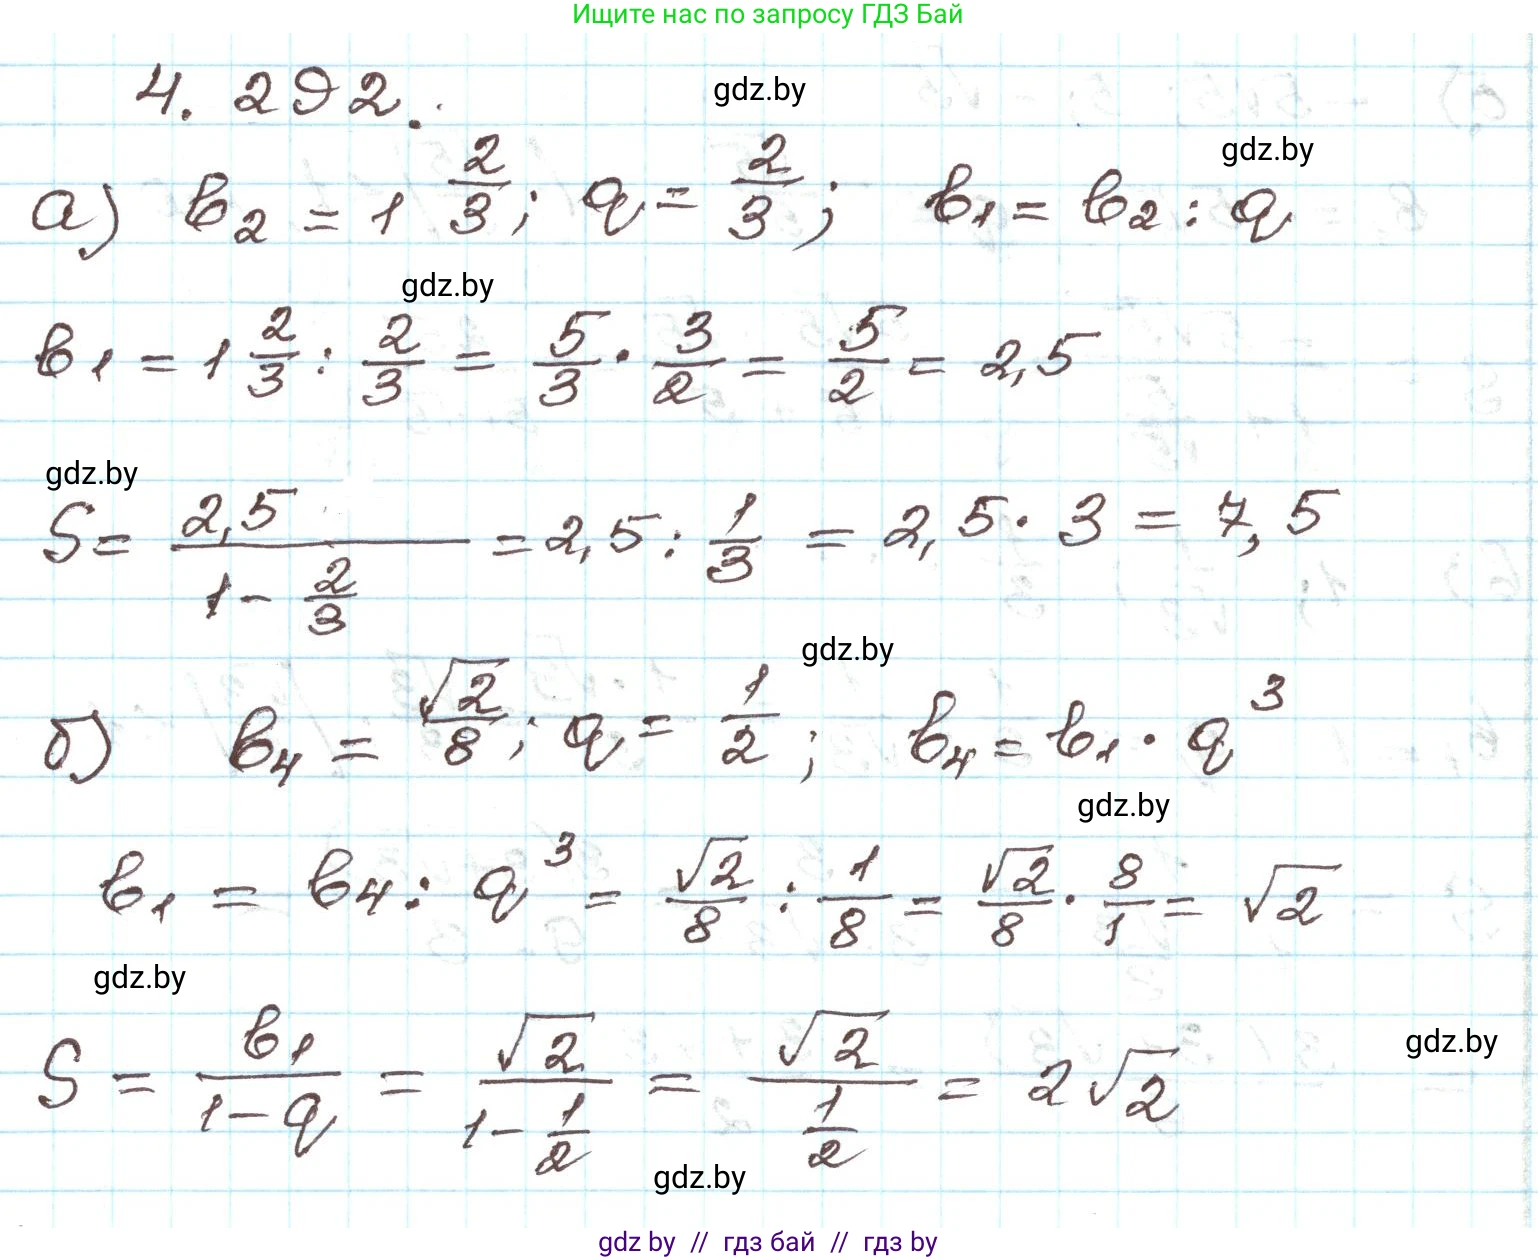 Ищите нас по запросу ГДЗ Бай
4.292.
gdz.by
gdz.by
а) b₂ = 1 2/3; q = 2/3; b₁ = b₂ : q
gdz.by
b₁ = 1 2/3 : 2/3 = 5/3 · 3/2 = 5/2 = 2,5
gdz.by
S = 2,5/(1 - 2/3) = 2,5 : 1/3 = 2,5 · 3 = 7,5
gdz.by
б) b₄ = √2/8; q = 1/2; b₄ = b₁ · q³
gdz.by
b₁ = b₄ : q³ = √2/8 : 1/8 = √2/8 · 8/1 = √2
gdz.by
gdz.by
S = b₁/(1 - q) = √2/(1 - 1/2) = √2/(1/2) = 2√2
gdz.by
gdz by // гдз бай // гдз by